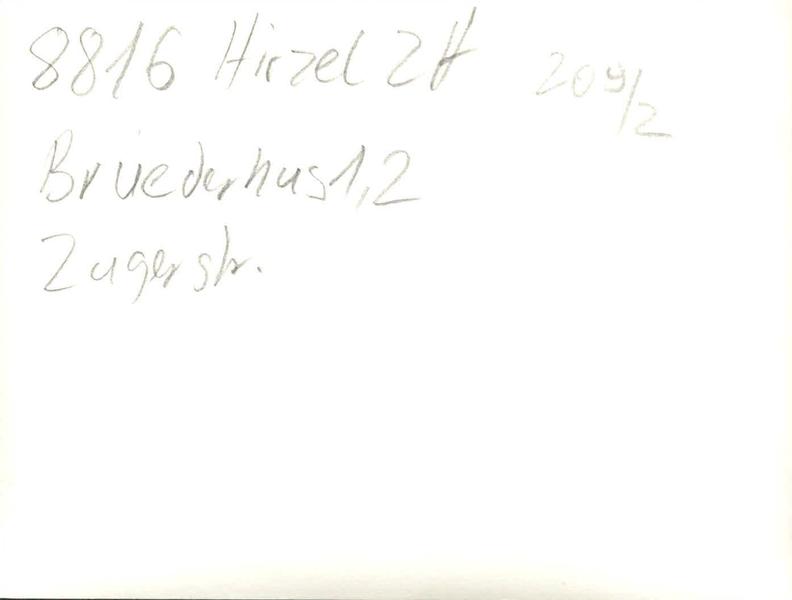 8816 Hirzel ZH 209/2
Brüederhus 1,2
Zugerstr.